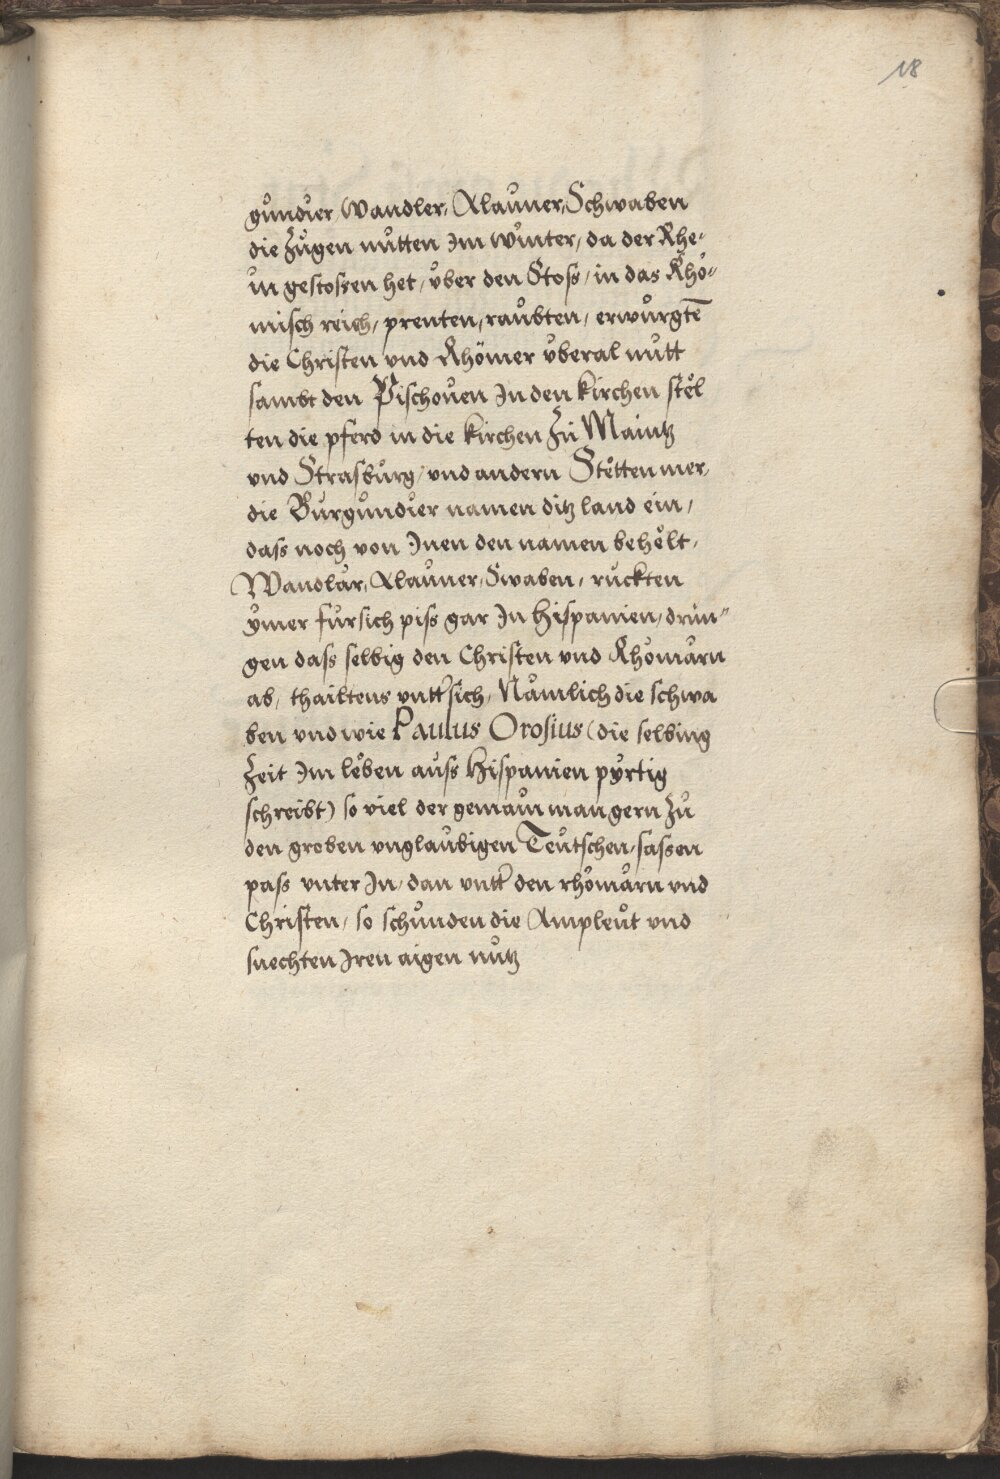 18
gundier, Wandler, Alauner, Schwaben
die zugen mitten Im winter, da der Rhe-
in gestossen het, über den Stoss, in das Rhö-
misch reich, prenten, raubten, erwürgtē
die Christen vnd Rhömer vberal mitt
sambt den Pischouen In den kirchen stël
ten die pferd in die kirchen zu Maintz
vnd Strasburg, vnd andern Stëtten mer,
die Burgundier namen ditz land ein,
dass noch von Inen den namen behëlt,
Wandlär, Alauner, Swaben, ruckten
ymer fürsich piss gar In Hispanien, drin-
gen dass selbig den Christen vnd Rhömärn
ab, thailtens vntt' sich, Nämlich die schwa
ben vnd wie Paulus Orosius (die selbing
zeit Im lëben auss Hispanien pyrtig
schreibt) so viel der gemain man gern zu
den groben vnglaubigen Teutschen, sassen
pass vnter In, dan vntt' den rhömärn vnd
Christen, so schunden die Ampleut vnd
suechten Iren aigen nutz